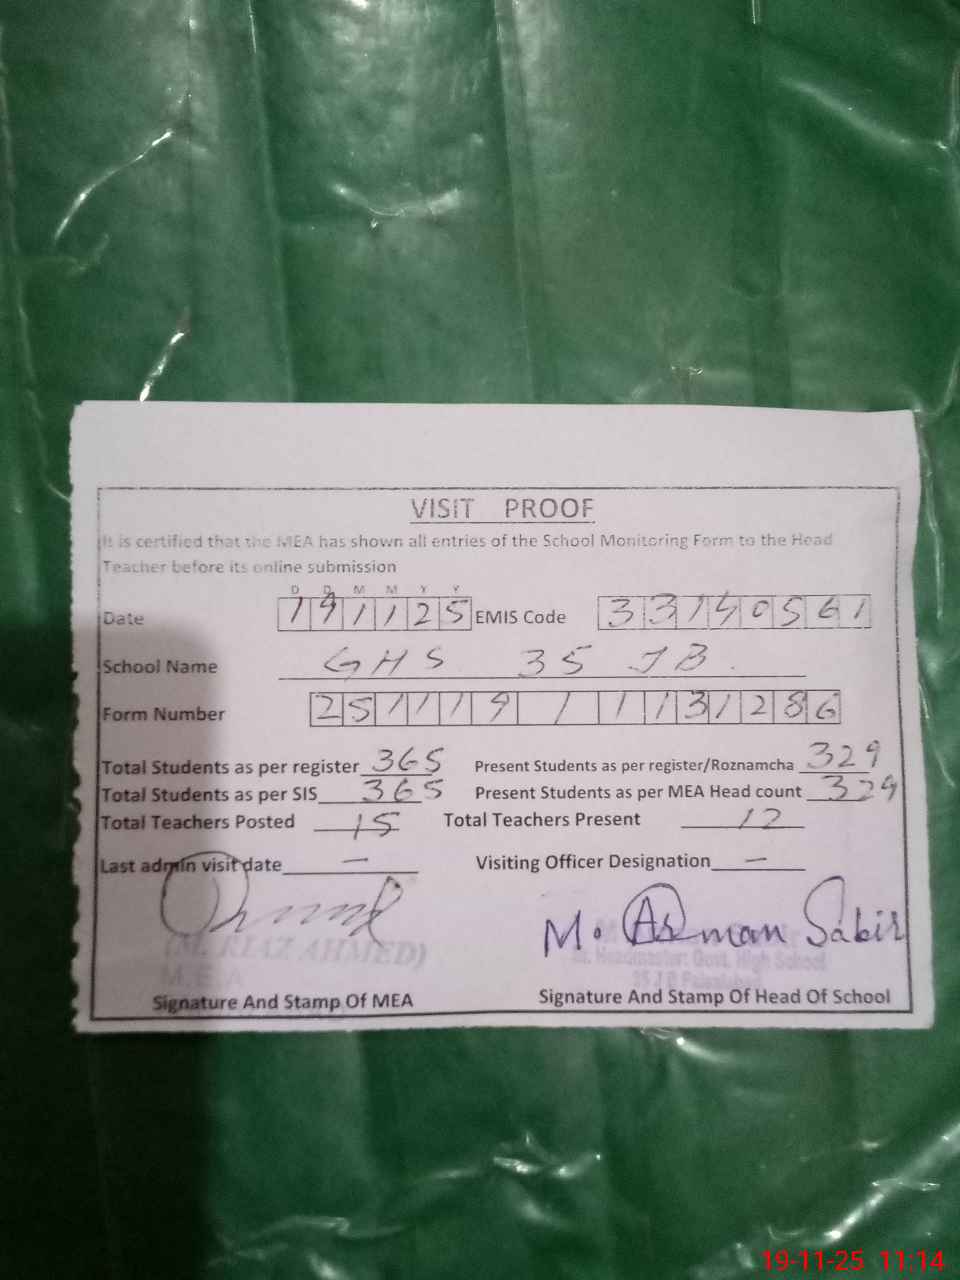 VISIT PROOF
It is certified that the MEA has shown all entries of the School Monitoring Form to the Head
Teacher before its online submission
D D M M Y Y
Date 191125 EMIS Code 33140561
School Name GHS 35 JB
Form Number 251119 1 1131286
Total Students as per register 365 Present Students as per register/Roznamcha 329
Total Students as per SIS 365 Present Students as per MEA Head count 329
Total Teachers Posted 15 Total Teachers Present 12
Last admin visit date — Visiting Officer Designation —
M. Arman Sabir
(M. RIAZ AHMED)
M.E.A
Sr. Headmaster: Govt. High School
35 J B Faisalabad
Signature And Stamp Of MEA Signature And Stamp Of Head Of School
19-11-25 11:14